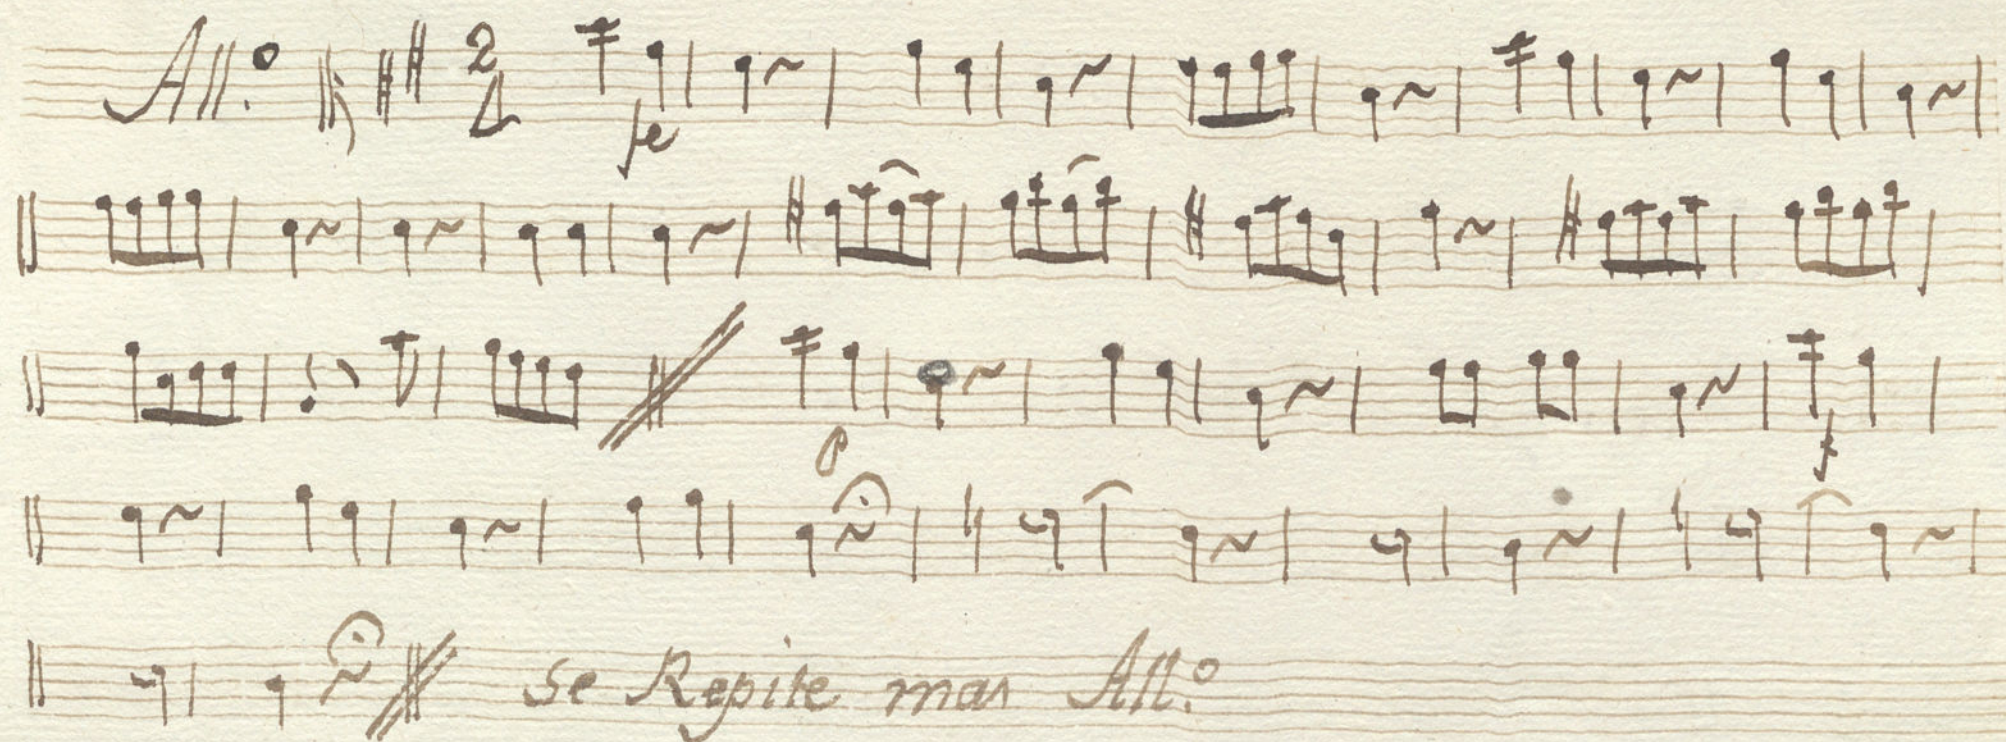 All.o 2 4
fe
p f
se Repite mas All.o